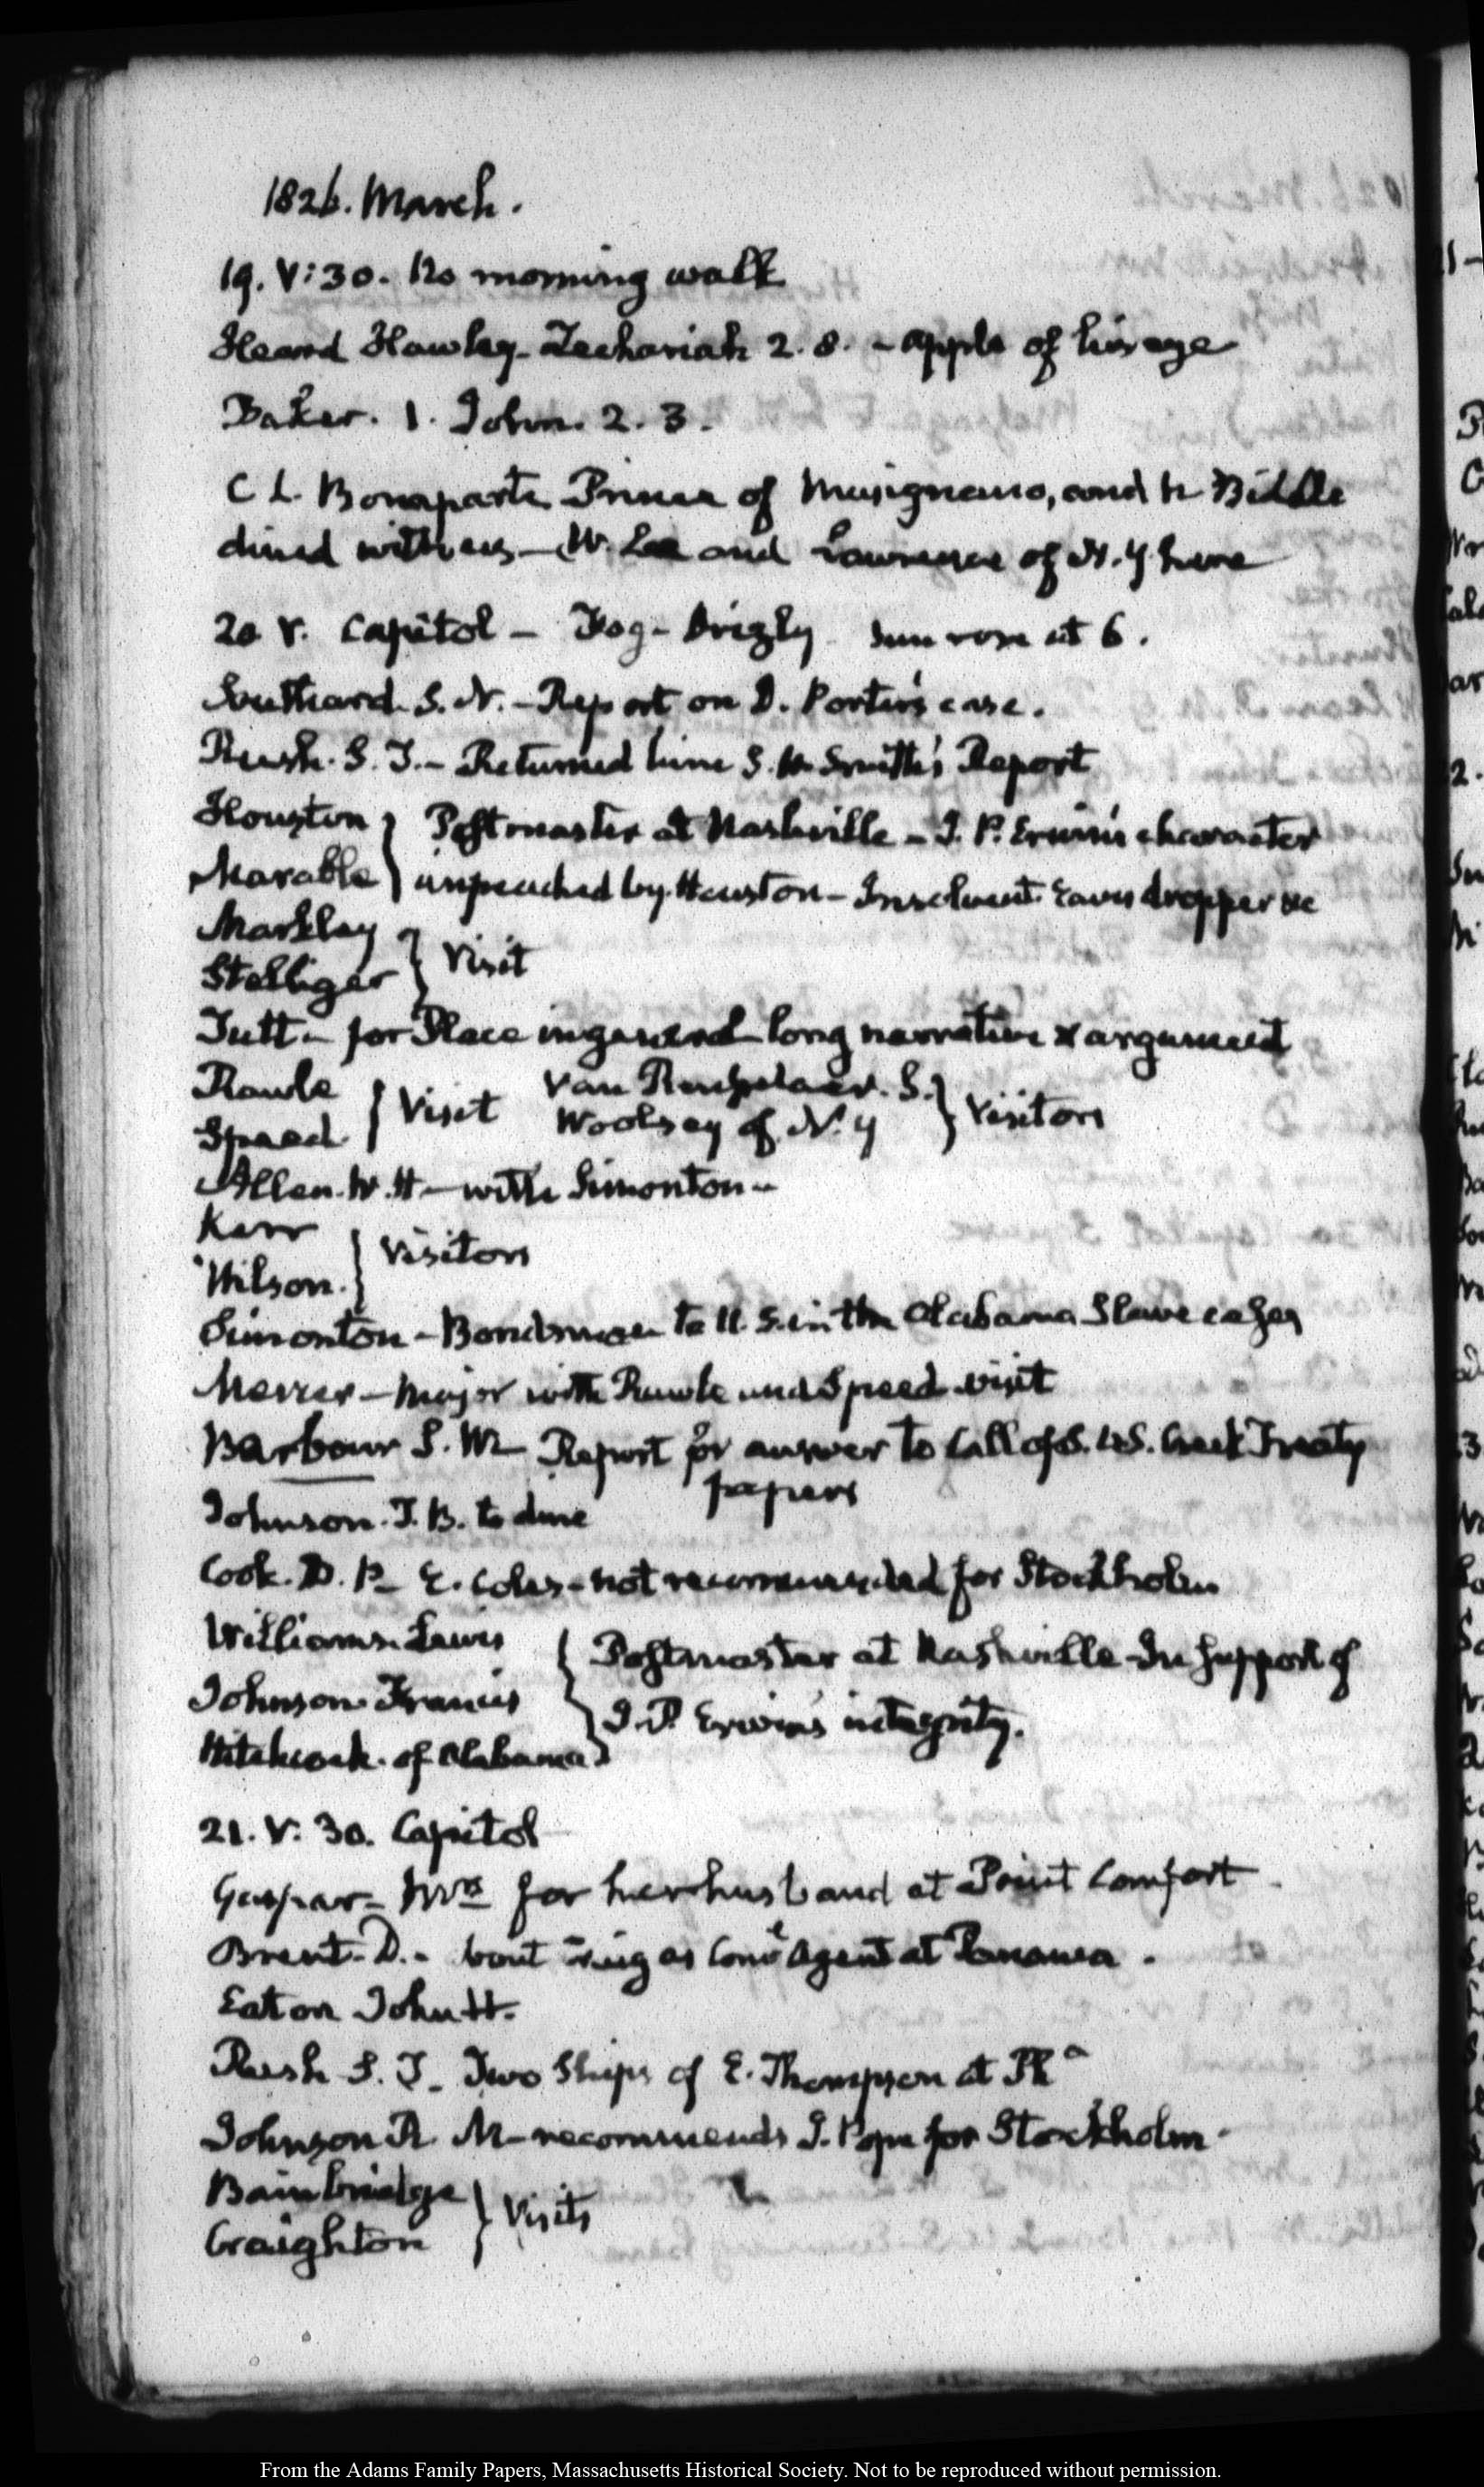 1826. March.
19. V:30. No morning walk
Heard Hawley - Zechariah 2. 8. - apple of his eye
Baker. 1. John. 2. 3.
C L. Bonaparte Prince of Musignano, and N Biddle
dined with us - W. Lee and Lawrence of N. Y here
20 V. Capitol - Fog - Drizly Sun rose at 6.
Southard. S. N. - Report on D. Porter's case.
Rush. S. T. - Returned him S. H. Smith's Report
Houston } Postmaster at Nashville - J. P. Erwin's character
Marable } impeached by Houston - Insolvent Eavesdropper &c
Markley } Visit
Stelliger
Tutt - for Place in general - long narrative & argument
Rawle } Visit Van Rensselaer. S. } Visitors
Speed. Woolsey of N. Y
Allen. W. H - with Simonton -
Kerr } Visitors
Wilson.
Simonton - Bondsman to U. S. in the Alabama Slave cases
Mercer - Major with Rawle and Speed - visit
Barbour S. W. Report for answer to Call of S. U. S. Creek Treaty
papers
Johnson. J. B. to dine
Cook. D. P - E. Coles - not recommended for Stockholm
Williams. Lewis { Postmaster at Nashville - In support of
Johnson. Francis } J. P. Erwin's integrity.
Hitchcock. of Alabama
21. V. 30. Capitol
Gaspar - Mrs for her husband at Point Comfort
Brent. D. - as Coml Agent at Panama.
Eaton John H.
Rush S. T. Two Ships of E. Thompson at Pha
Johnson R. M - recommends J. Pope for Stockholm.
Bainbridge } Visits
Creighton
From the Adams Family Papers, Massachusetts Historical Society. Not to be reproduced without permission.